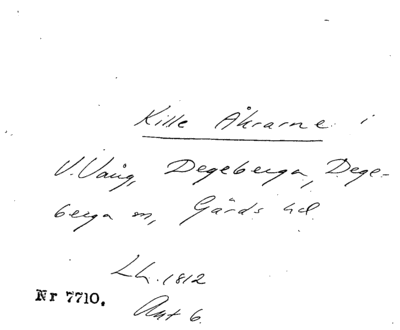 Kille Åkrarne i
V. Vång, Degeberga, Dege-
berga sn, Gärds hd.
Lh. 1812
Nr 7710.
Akt 6.